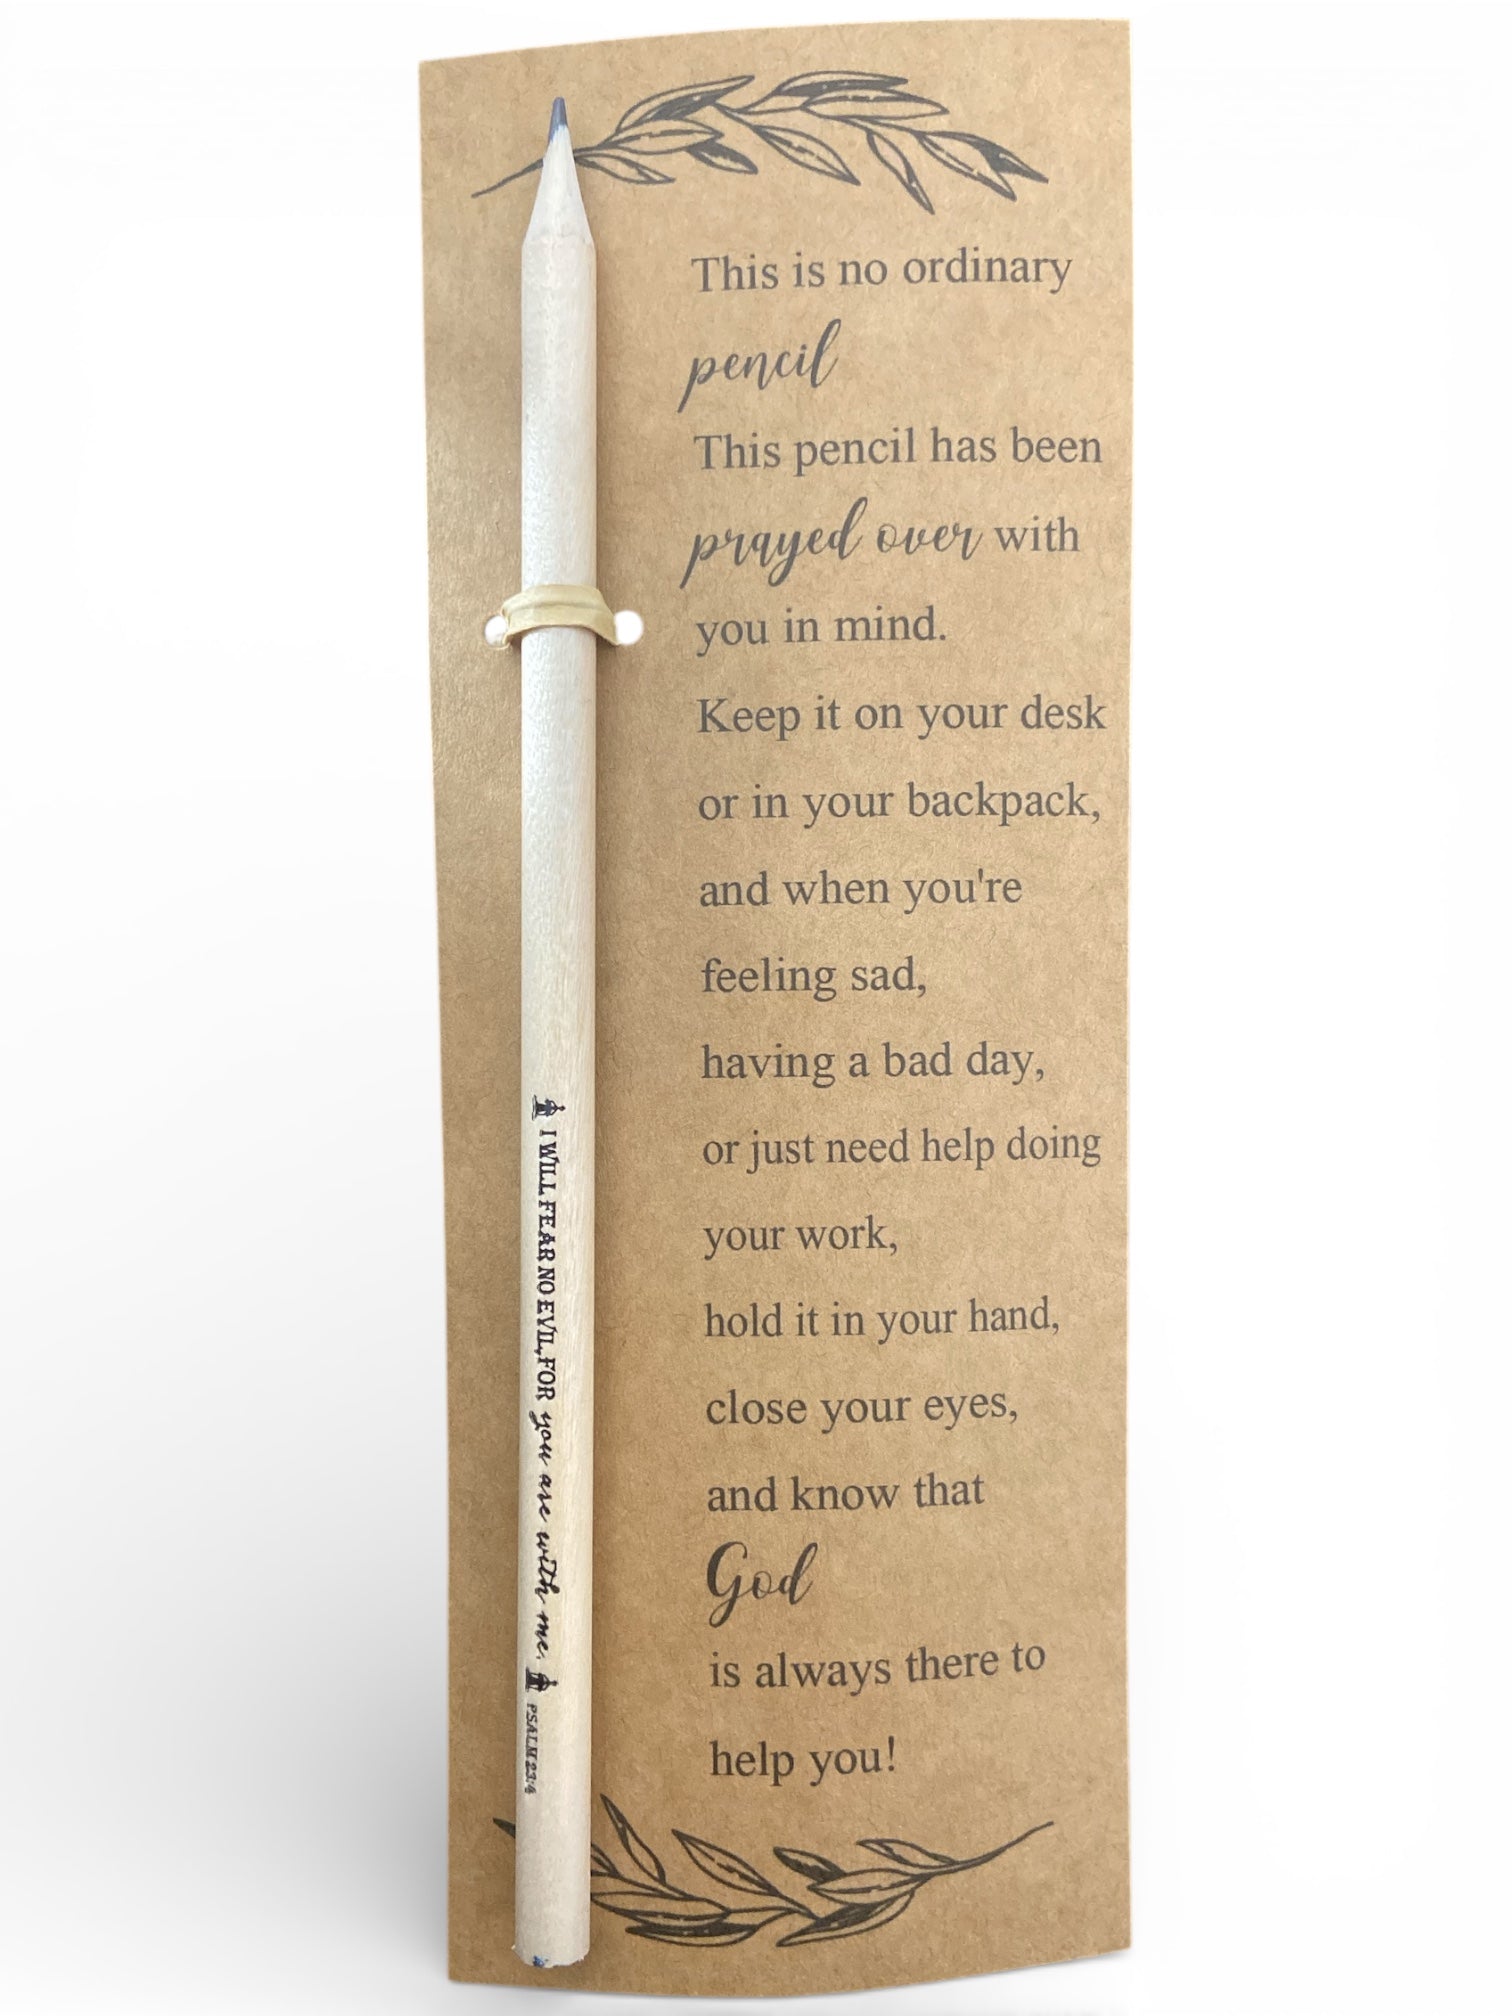 This is no ordinary
pencil
This pencil has been
prayed over with
you in mind.
Keep it on your desk
or in your backpack,
and when you're
feeling sad,
having a bad day,
or just need help doing
your work,
hold it in your hand,
close your eyes,
and know that
God
is always there to
help you!
I WILL FEAR NO EVIL, FOR you are with me. PSALM 23:4